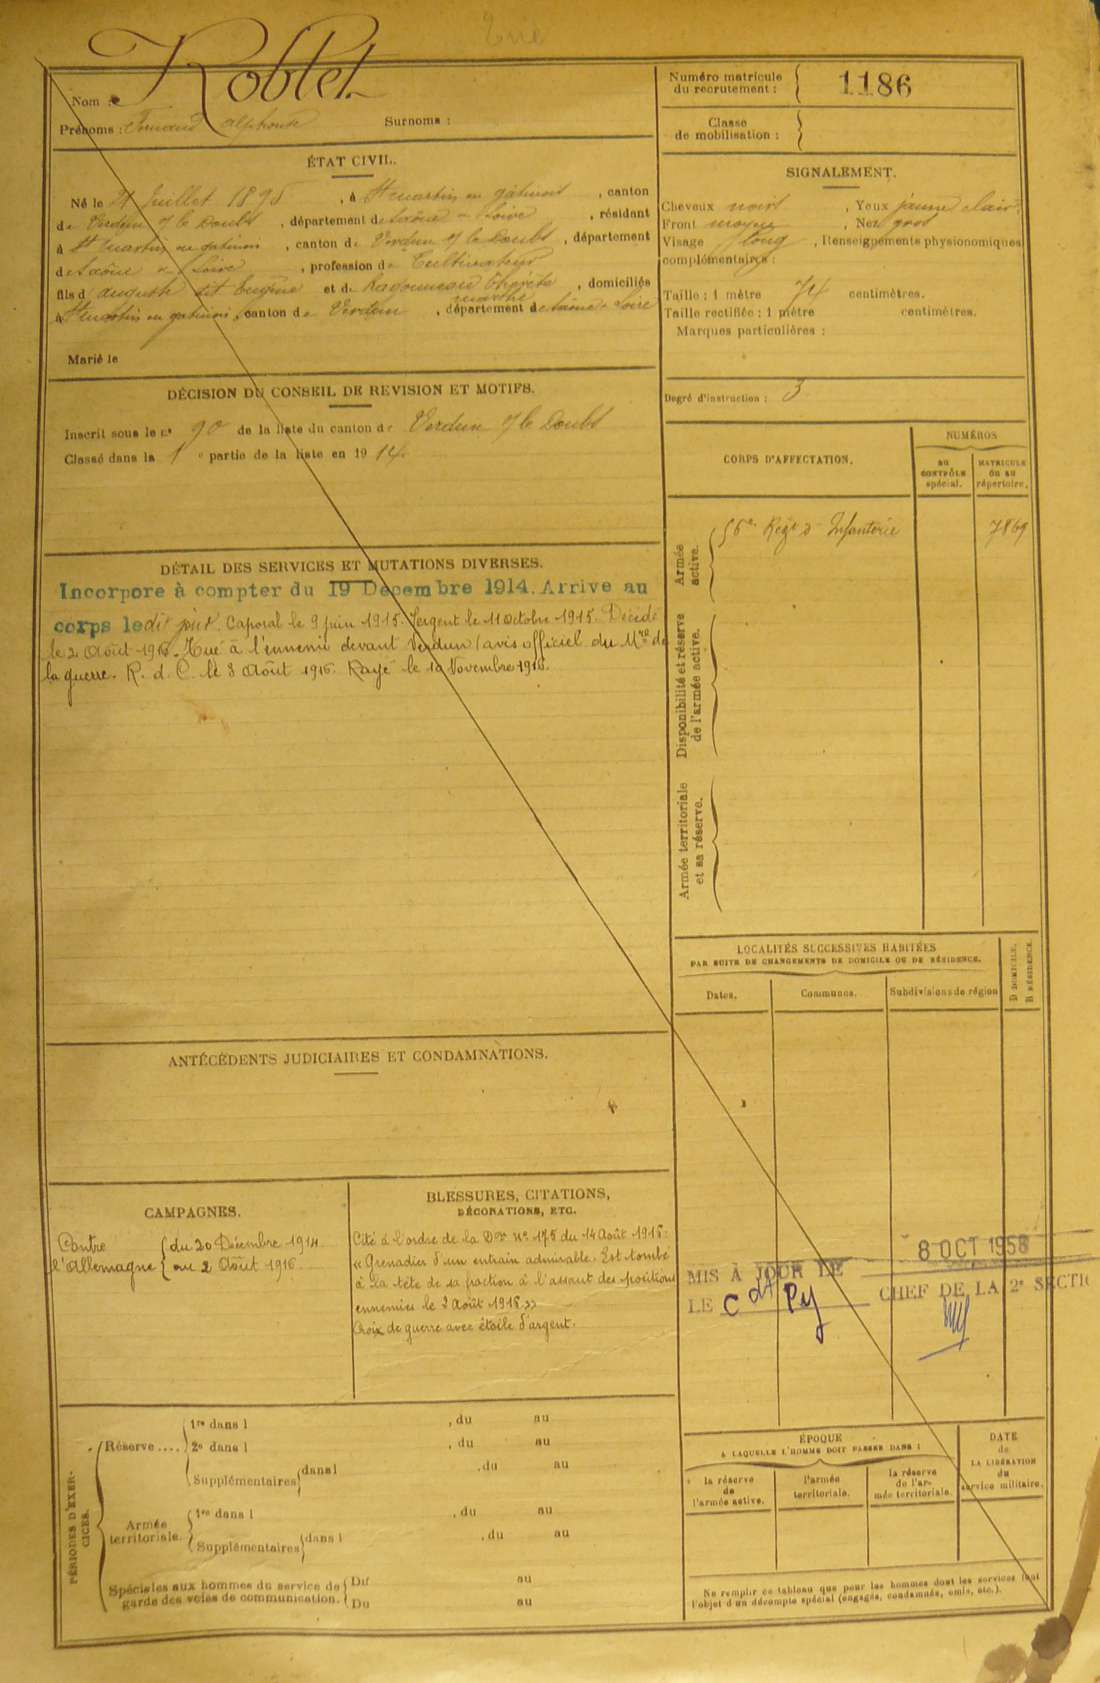 Tué
Nom : Roblet
Prénoms : Fernand Alphonse Surnoms :
Numéro matricule
du recrutement : 1186
Classe
de mobilisation :
ÉTAT CIVIL.
Né le Juillet 1895, à St Martin en gâtinois, canton
de Verdun s/ le Doubs, département de Saône & Loire, résidant
à St Martin en gatinois, canton de Verdun s/ le Doubs, département
de Saône & Loire, profession de Cultivateur
fils d'auguste dit Eugène et de , domiciliés
à St martin en gatinois, canton de Verdun, département de Saône & Loire
Marié le
SIGNALEMENT.
Cheveux noirs, Yeux jaune clair.
Front moyen, Nez gros
Visage long, Renseignements physionomiques
complémentaires :
Taille : 1 mètre 74 centimètres.
Taille rectifiée : 1 mètre centimètres.
Marques particulières :
Degré d'instruction : 3
DÉCISION DU CONSEIL DE REVISION ET MOTIFS.
Inscrit sous le n° 90 de la liste du canton de Verdun s/ le Doubs
Classé dans la 1e partie de la liste en 1914.
DÉTAIL DES SERVICES ET MUTATIONS DIVERSES.
Incorpore à compter du 19 Decembre 1914. Arrive au
corps ledit jour. Caporal le 9 juin 1915. Sergent le 11 Octobre 1915. Décédé
le 2 Août 1916. Tué à l'ennemi devant Verdun (avis officiel du Mre de
la guerre. R. d. C. le 3 Août 1916. Rayé le 10 Novembre 1916.
CORPS D'AFFECTATION.
NUMÉROS
AU
CONTRÔLE
spécial.
MATRICULE
OU AU
répertoire.
Armée
active.
56e Régt d'Infanterie 7869
Disponibilité et réserve
de l'armée active.
Armée territoriale
et sa réserve.
LOCALITÉS SUCCESSIVES HABITÉES
PAR SUITE DE CHANGEMENTS DE DOMICILE OU DE RÉSIDENCE.
Dates.
Communes.
Subdivisions de région
D DOMICILE.
R RÉSIDENCE.
ANTÉCÉDENTS JUDICIAIRES ET CONDAMNATIONS.
CAMPAGNES.
Contre { du 20 Décembre 1914
l'Allemagne { au 2 Août 1916.
BLESSURES, CITATIONS,
DÉCORATIONS, ETC.
Cité à l'ordre de la Don No 175 du 14 Août 1916:
« Grenadier d'un entrain admirable. Est tombé
à la tête de sa fraction à l'assaut des positions
ennemies le 2 Août 1916 »
Croix de guerre avec étoile d'argent.
8 OCT 1958
MIS À JOUR LE
LE Cdt Py CHEF DE LA 2e SECTI
PÉRIODES D'EXER-
CICES.
Réserve....
1re dans l , du au
2e dans l , du au
Supplémentaires dans l , du au
Armée
territoriale.
1re dans l , du au
Supplémentaires dans l , du au
Spéciales aux hommes du service de
garde des voies de communication.
Du au
Du au
ÉPOQUE
A LAQUELLE L'HOMME DOIT PASSER DANS :
la réserve
de
l'armée active.
l'armée
territoriale.
la réserve
de l'ar-
mée territoriale.
DATE
de
LA LIBÉRATION
du
service militaire.
Ne remplir ce tableau que pour les hommes dont les services font
l'objet d'un décompte spécial (engagés, condamnés, omis, etc.).